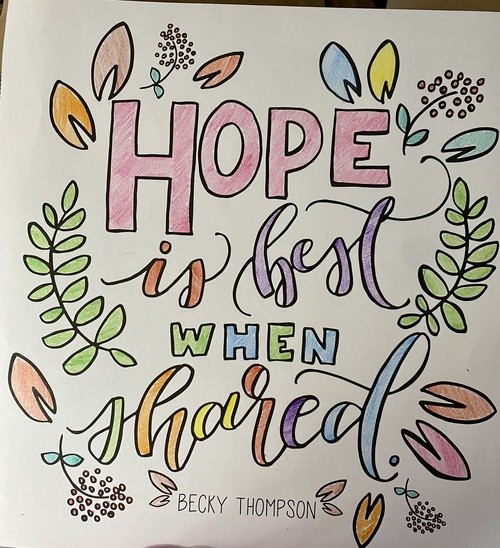 HOPE
is best
WHEN
shared.
BECKY THOMPSON